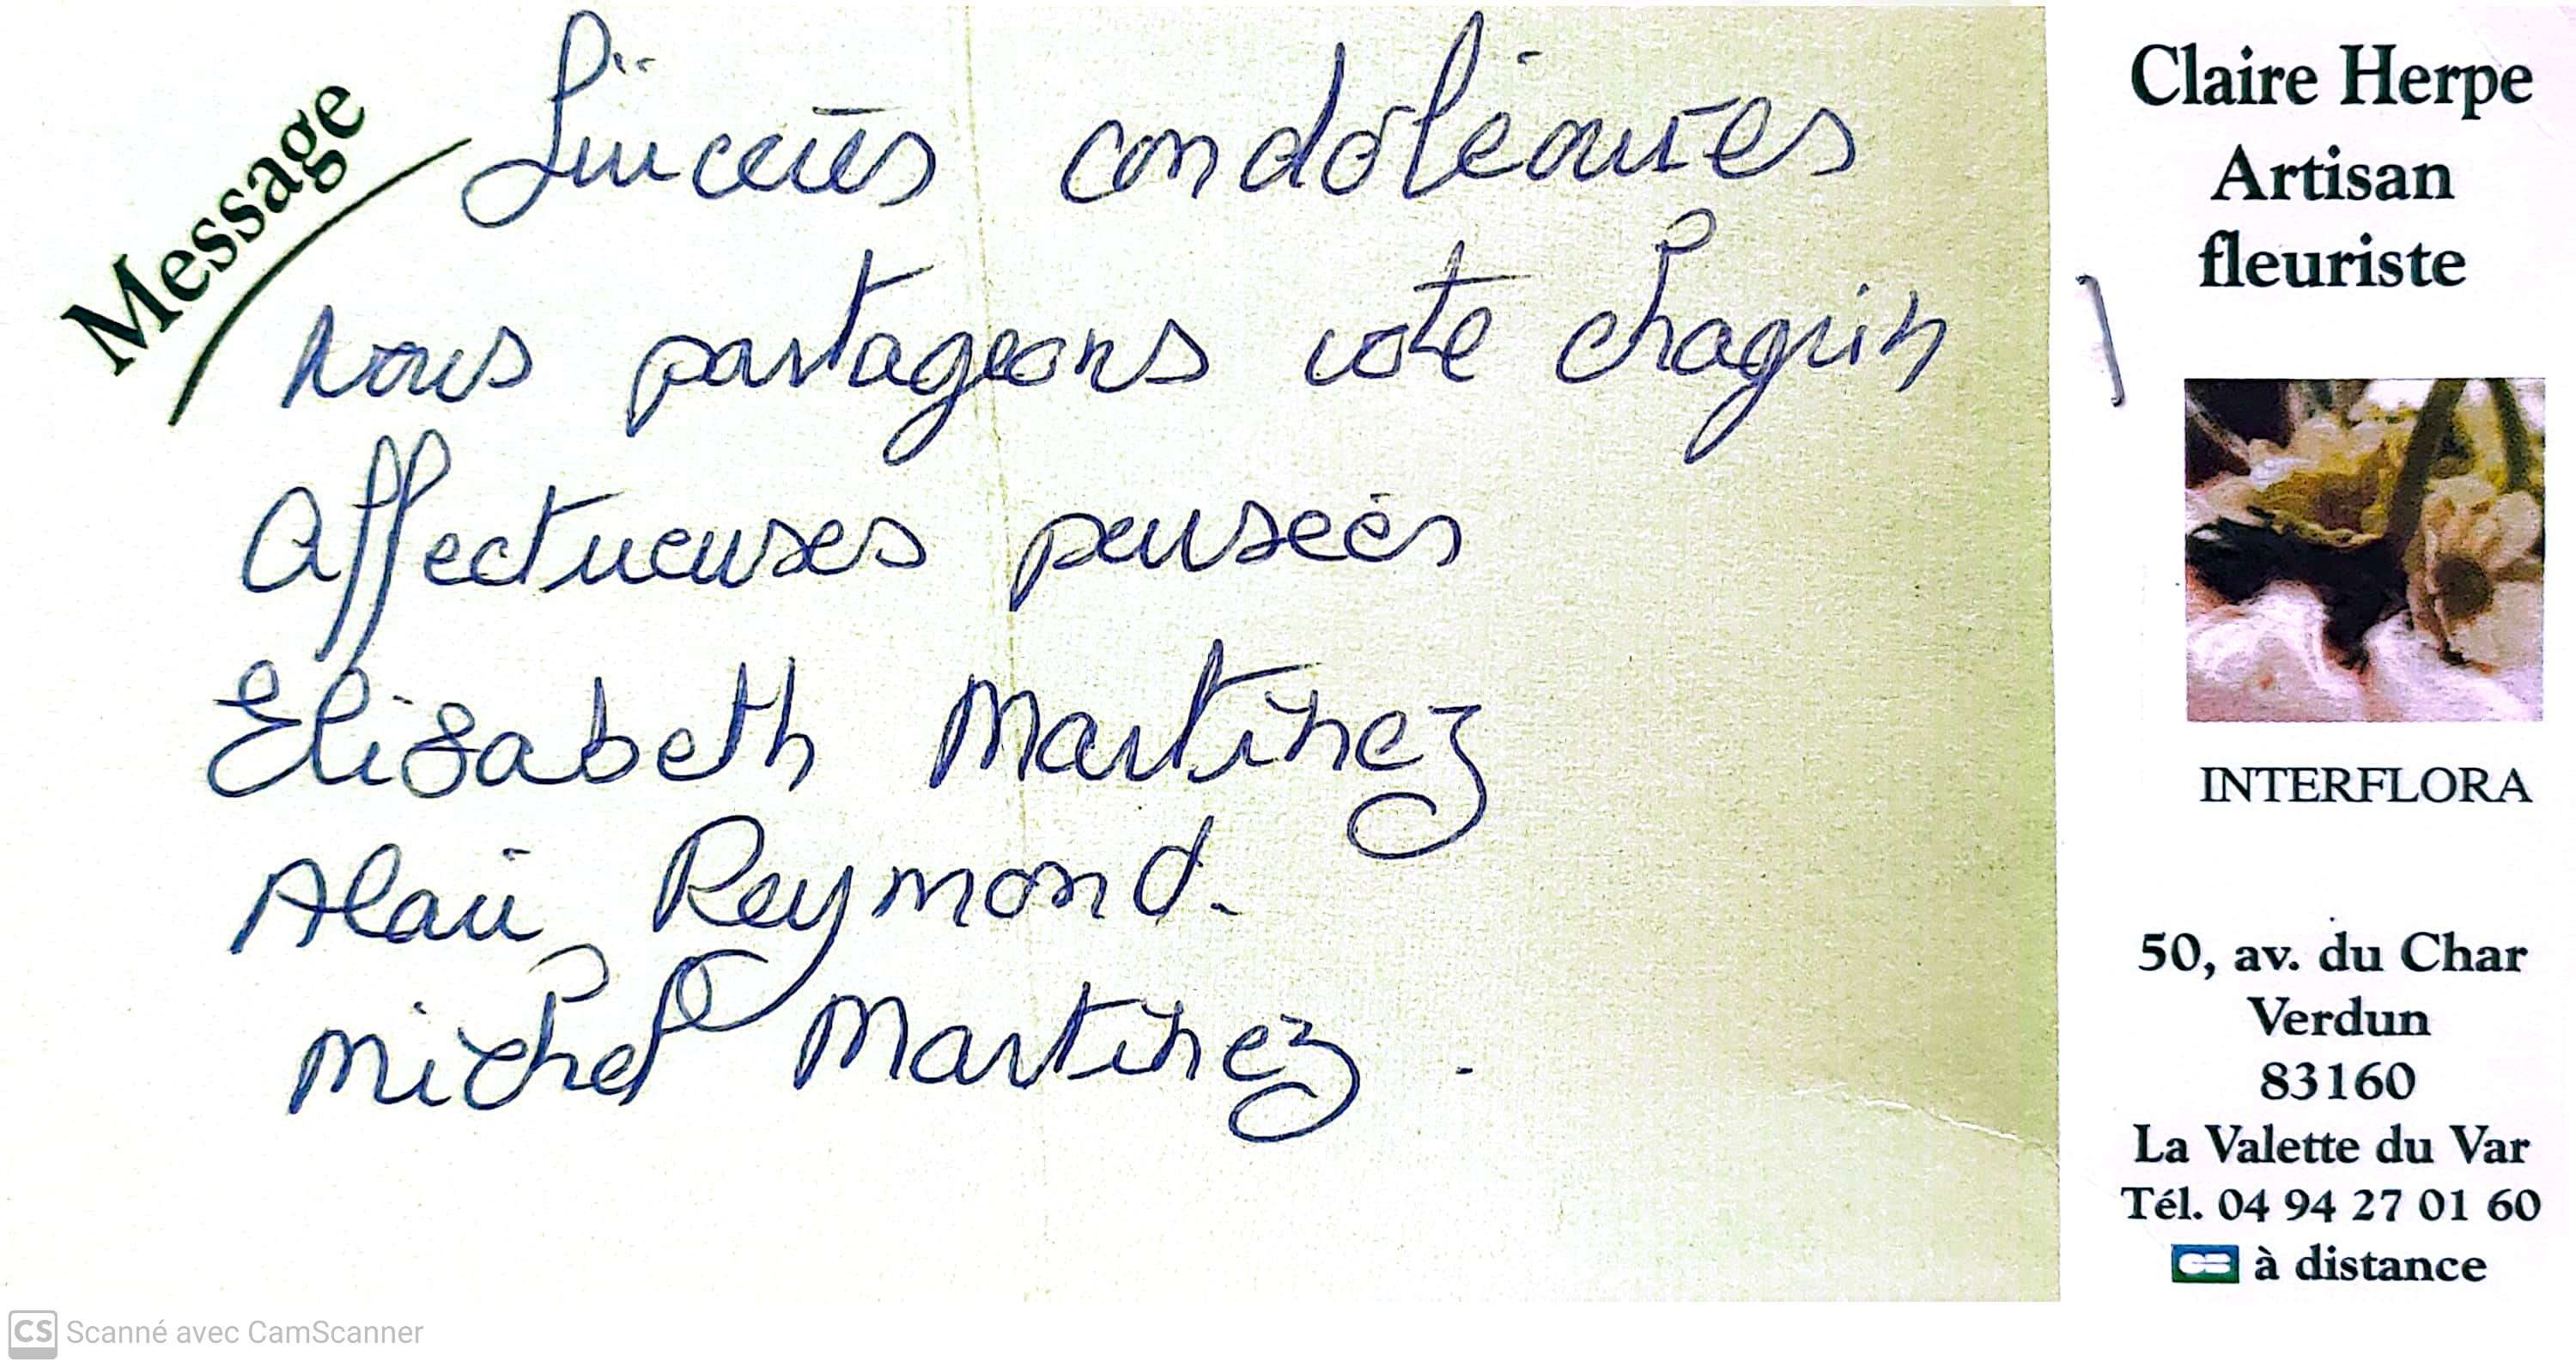 Message
Sincères condoléances
Nous partageons vote chagrin
Affectueuses pensées
Elisabeth Martinez
Alain Reymond.
Michel Martinez.
Claire Herpe
Artisan
fleuriste
INTERFLORA
50, av. du Char
Verdun
83160
La Valette du Var
Tél. 04 94 27 01 60
CB à distance
CS Scanné avec CamScanner